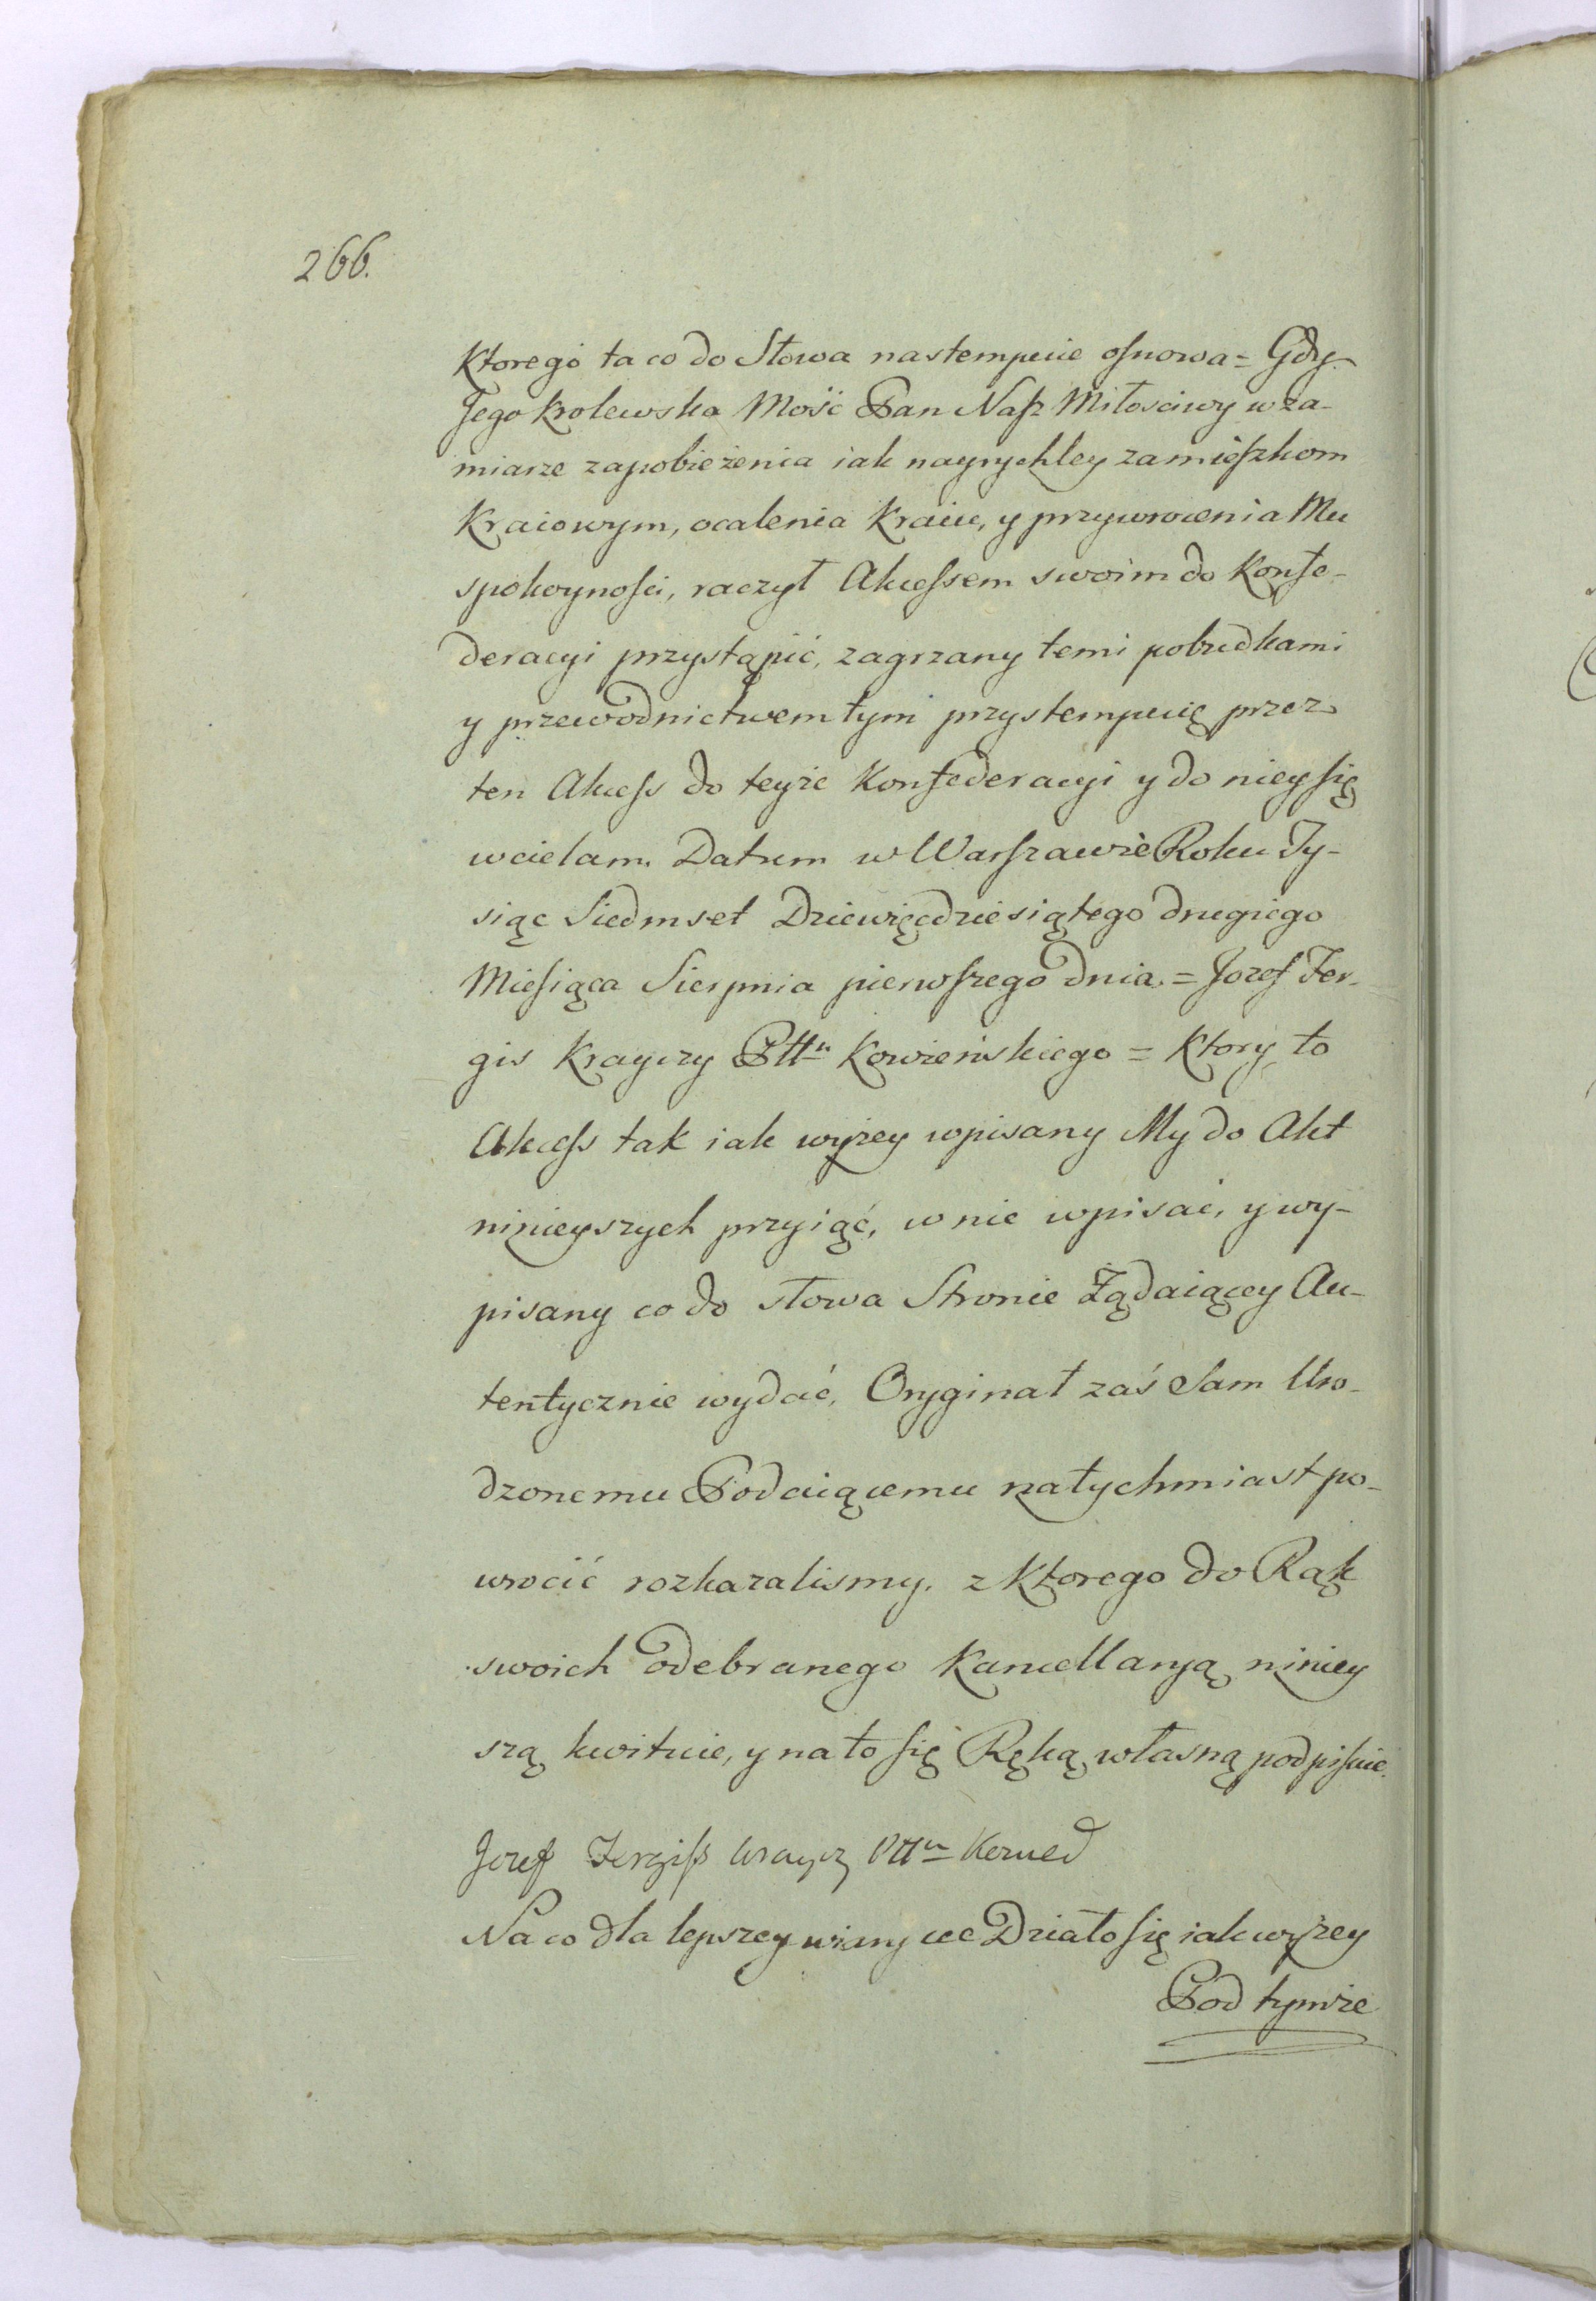 266.
Ktorego ta co do Słowa nastempuie osnowa = Gdy
Jego Krolewska Mość Pan Nasz Miłosciwy w za-
miarze zapobieżenia iak nayrychley zamieszkom
Kraiowym, ocalenia Kraiu, y przywrocenia Mu
spokoynosci, raczył Akcessem swoim do Konfe-
deracyi przystąpić, zagrzany temi pobudkami
y przewodnictwem tym przystempuię przez
ten Akcess do teyże Konfederacyi y do niey się
wcielam. Datum w Warszawie Roku Ty-
siąc Siedmset Dziewięcdziesiątego drugiego
Miesiąca Sierpnia pierwszego dnia. = Jozef Jer-
gis Krayczy Pttu Kowieńskiego = Ktory to
Akcess tak iak wyżey wpisany My do Akt
ninieyszych przyiąć, w nie wpisać, y wy-
pisany co do słowa Stronie Żądaiącey Au-
tentycznie wydać, Oryginał zaś Sam Uro-
dzonemu Podaiącemu natychmiast po-
wrocić rozkazalismy. z Ktorego do Rąk
swoich odebranego Kancellaryą niniey
szą kwituie, y na to się Ręką własną podpisuie.
Jozef Jergiss Krayczy Pttu Kowień
Na co dla lepszey wiary ecc Działo się iak wyżey
Pod tymże